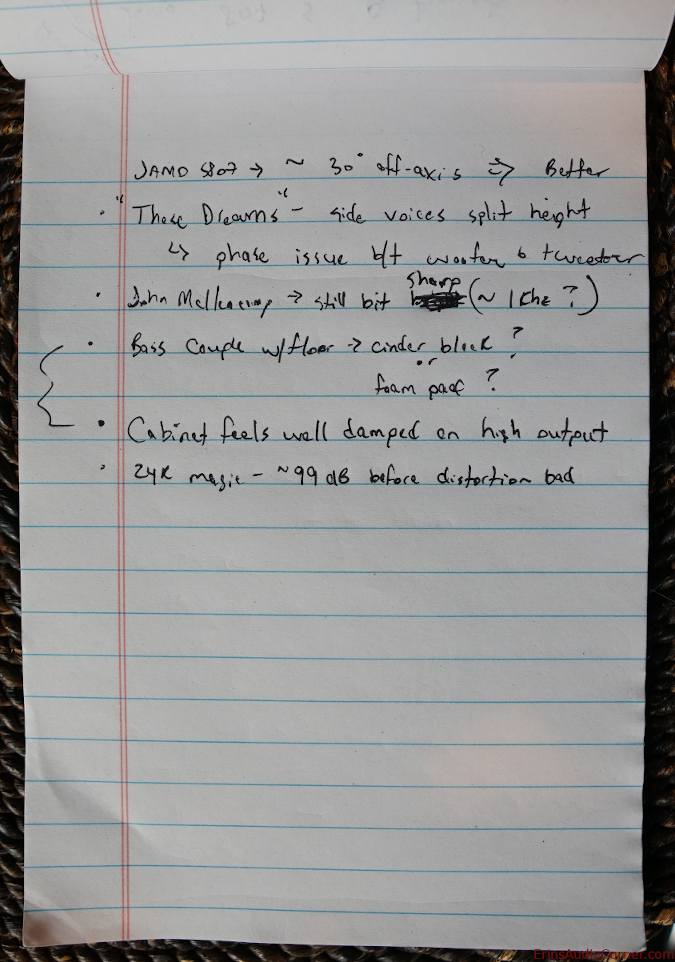 JAMO S807 → ~ 30° off-axis ⇒ Better
• "These Dreams" - side voices split height
↳ phase issue b/t woofer & tweeter
• John Mellencamp → still bit sharp (~ 1Khz ?)
• Bass Couple w/floor → cinder block ?
or
foam pad ?
• Cabinet feels well damped on high output
• 24K magic - ~99 dB before distortion bad
ErinsAudioCorner.com